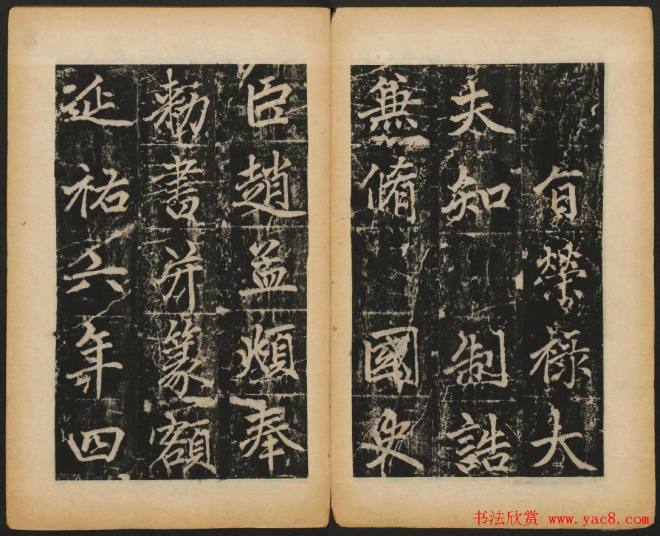 旨榮祿大
夫知制誥
兼脩國史
臣趙孟頫奉
勅書并篆額
延祐六年四
书法欣赏 www.yac8.com